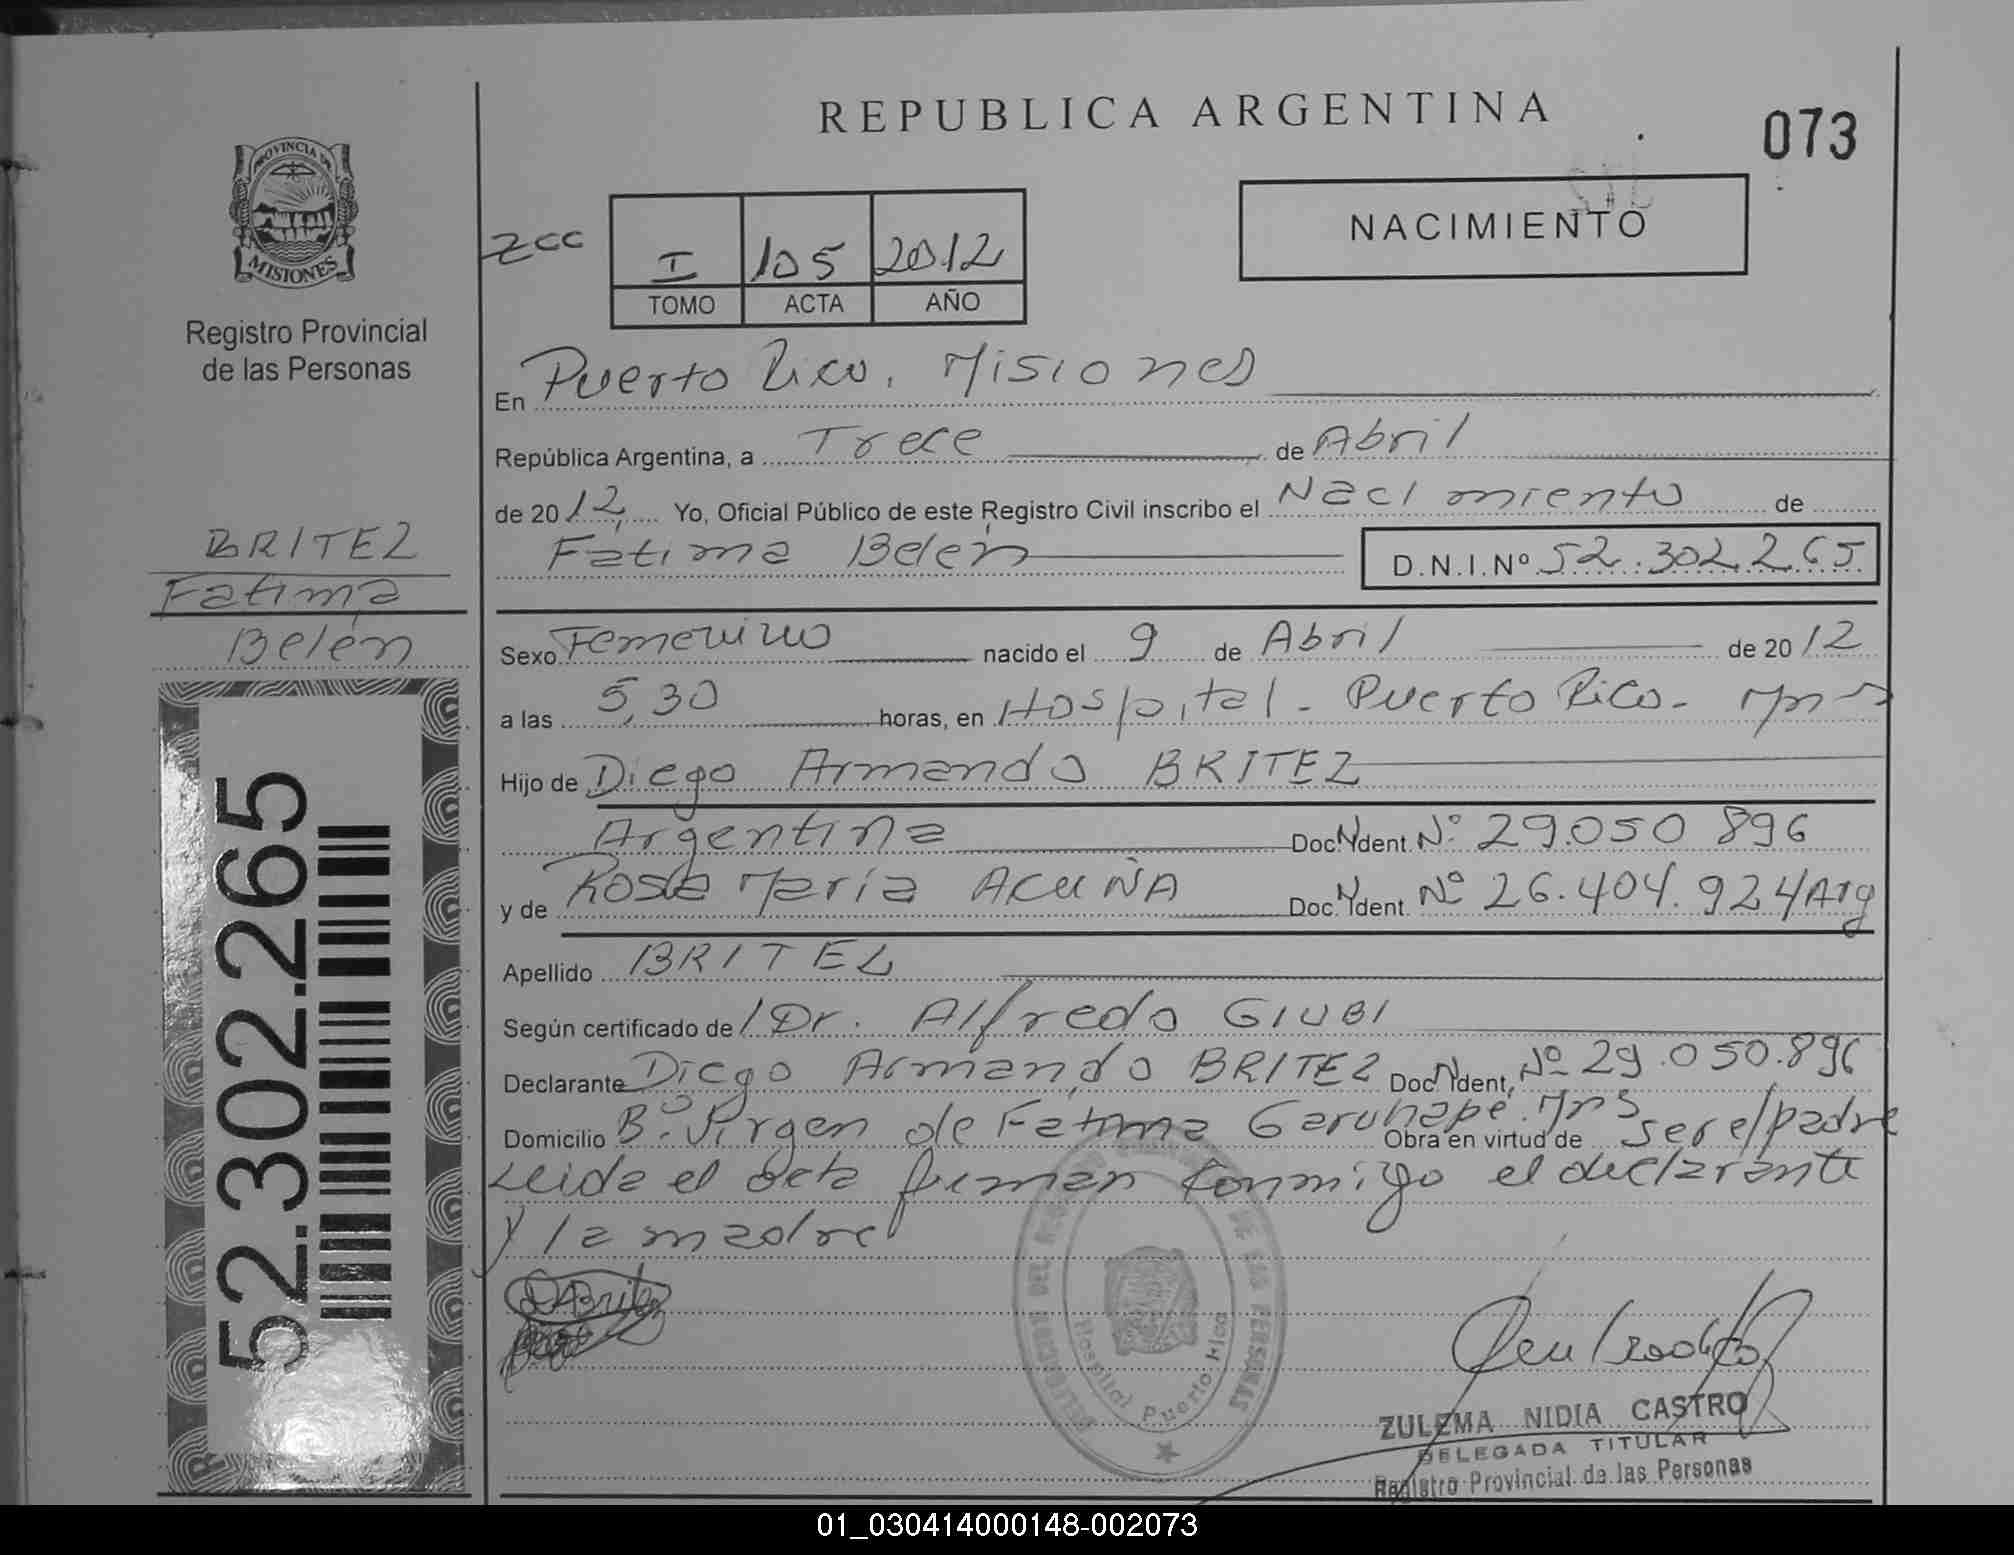 REPUBLICA ARGENTINA
073
PROVINCIA DE
MISIONES
Registro Provincial
de las Personas
zcc
I 105 2012
TOMO ACTA AÑO
NACIMIENTO
En Puerto Rico. Misiones
República Argentina, a Trece de Abril
de 2012, Yo, Oficial Público de este Registro Civil inscribo el Nacimiento de
Fátima Belén D.N.I.Nº 52.302.265
BRITEZ
Fatima
Belén
52.302.265
Sexo Femenino nacido el 9 de Abril de 2012
a las 5,30 horas, en Hospital - Puerto Rico - Mns
Hijo de Diego Armando BRITEZ
Argentina Doc. Ident. Nº 29.050 896
y de Rosa María ACUÑA Doc. Ident. Nº 26.404.924 Arg
Apellido BRITEZ
Según certificado de Dr. Alfredo GIUBI
Declarante Diego Armando BRITEZ Doc. Ident. Nº 29.050.896
Domicilio Bº Virgen de Fatima Garuhapé. Mns Obra en virtud de ser el padre
Leida el acta firman conmigo el declarante
y la madre
DELEGACION DEL REGISTRO PROVINCIAL DE LAS PERSONAS
Hospital Puerto Rico
ZULEMA NIDIA CASTRO
DELEGADA TITULAR
Registro Provincial de las Personas
01_030414000148-002073